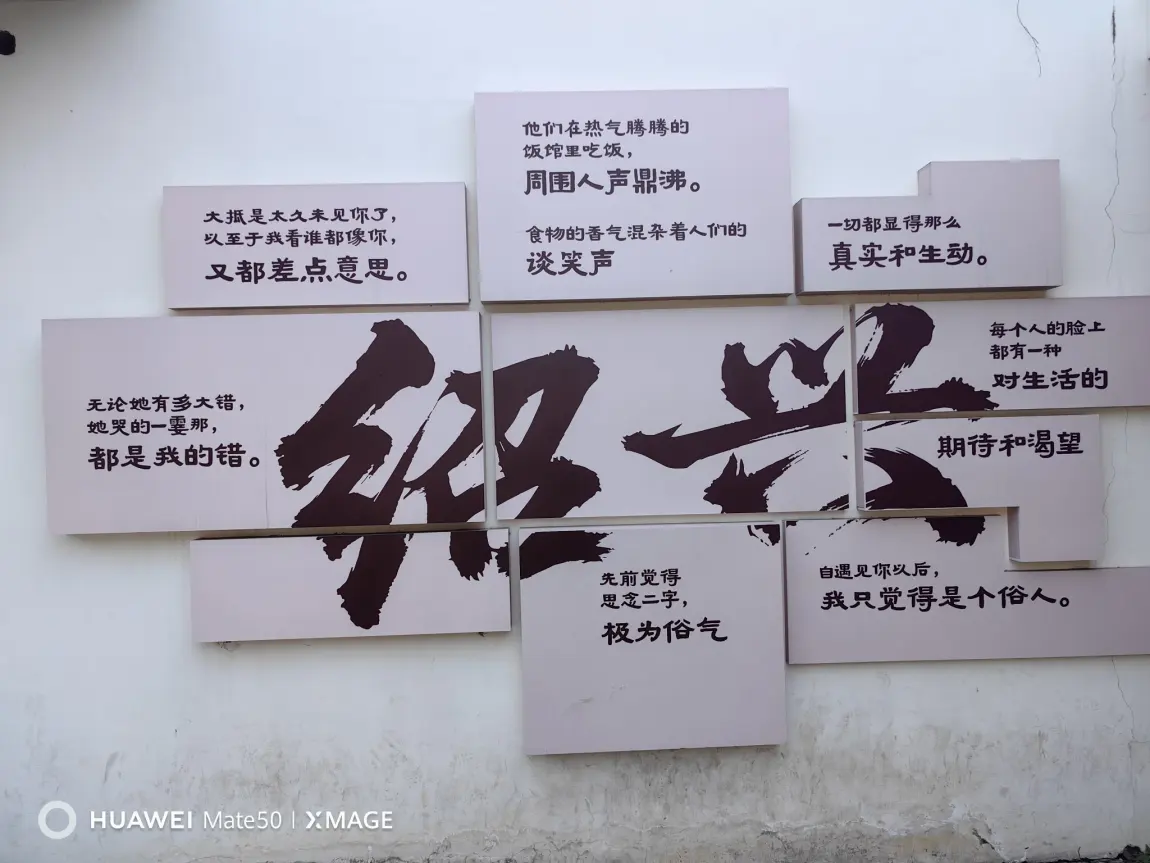 他们在热气腾腾的
饭馆里吃饭，
周围人声鼎沸。
食物的香气混杂着人们的
谈笑声
大抵是太久未见你了，
以至于我看谁都像你，
又都差点意思。
一切都显得那么
真实和生动。
无论她有多大错，
她哭的一霎那，
都是我的错。
绍兴
每个人的脸上
都有一种
对生活的
期待和渴望
先前觉得
思念二字，
极为俗气
自遇见你以后，
我只觉得是个俗人。
HUAWEI Mate50 | XMAGE